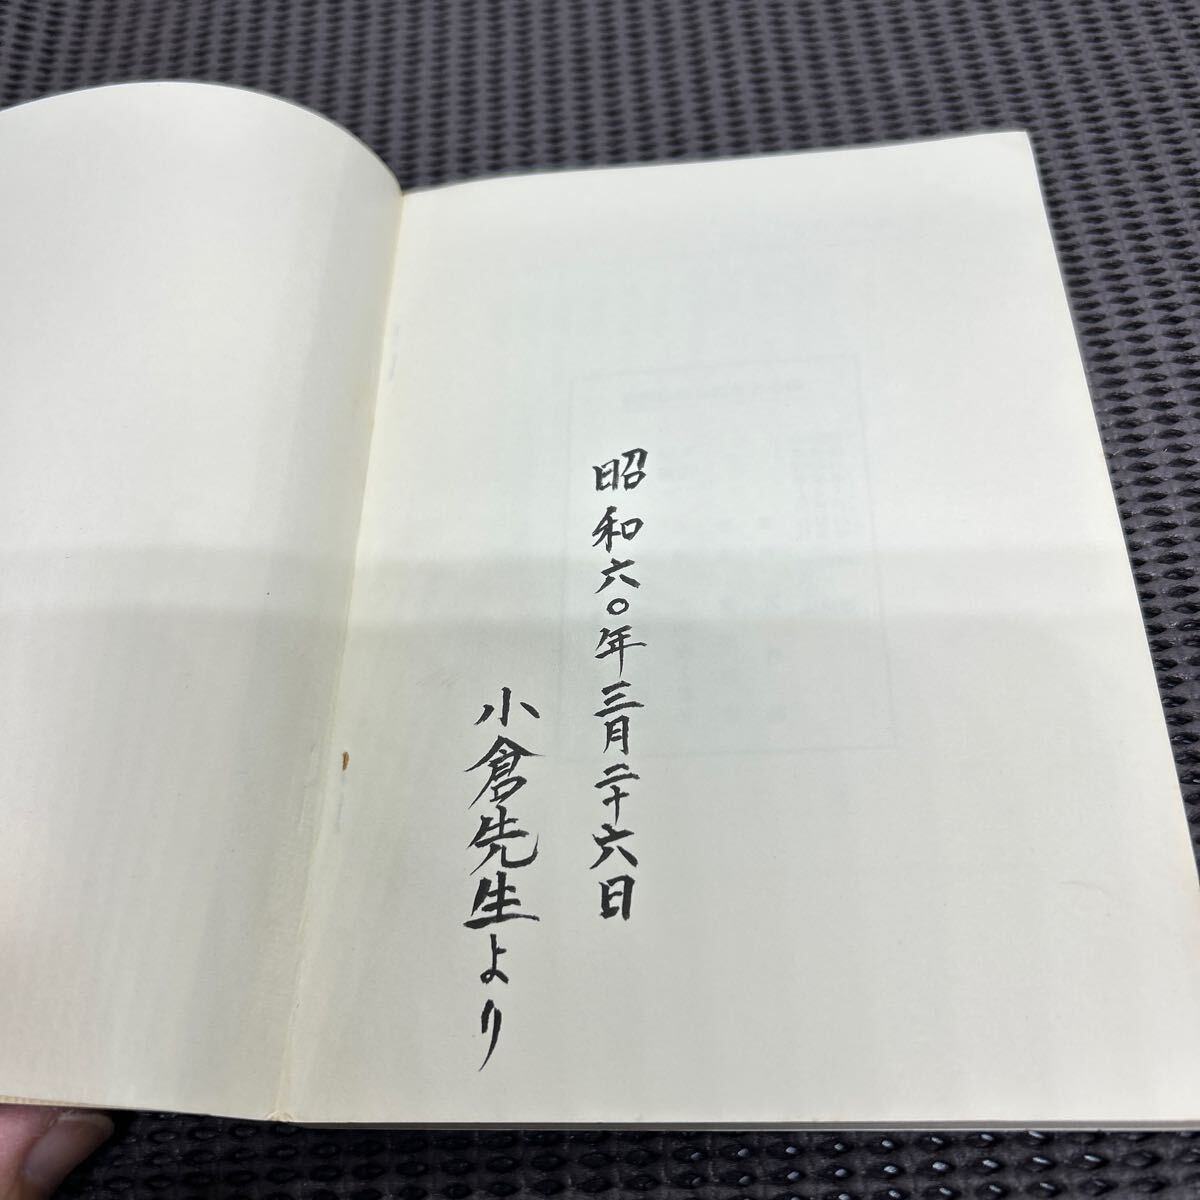 昭和六〇年三月二十六日
小倉先生より